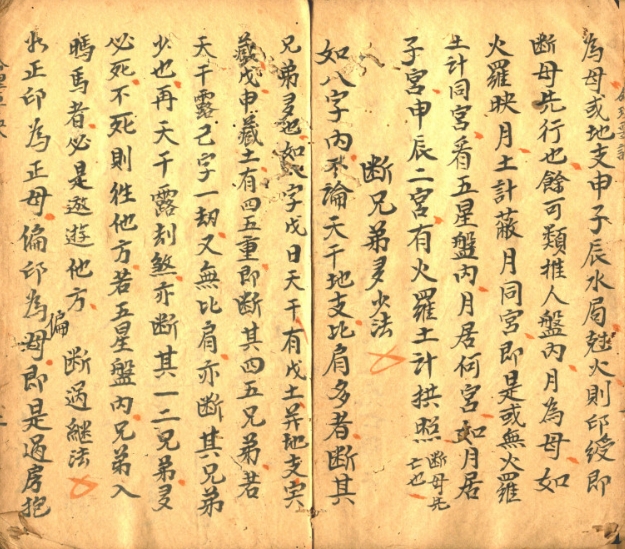 為母或地支申子辰水局尅火則印綬即
断母先行也餘可類推人盤內月為母如
火羅映月土計蔽月同宮即是或無火羅
土計同宮看五星盤內月居何宮如月居
子宮申辰二宮有火羅土計拱照断母先亡也
断兄弟多少法
如八字內不論天干地支比肩多者断其
兄弟多也如八字戊日天干有戊土并地支寅
藏戊申藏土有四五重即断其四五兄弟若
天干露己字一劫又無比肩亦断其兄弟
少也再天干露刦煞亦断其一二兄弟多
必死不死則徃他方若五星盤內兄弟入
駡馬者必是遨遊他方
断過継法
如正印為正母偏印為偏母即是過房抱